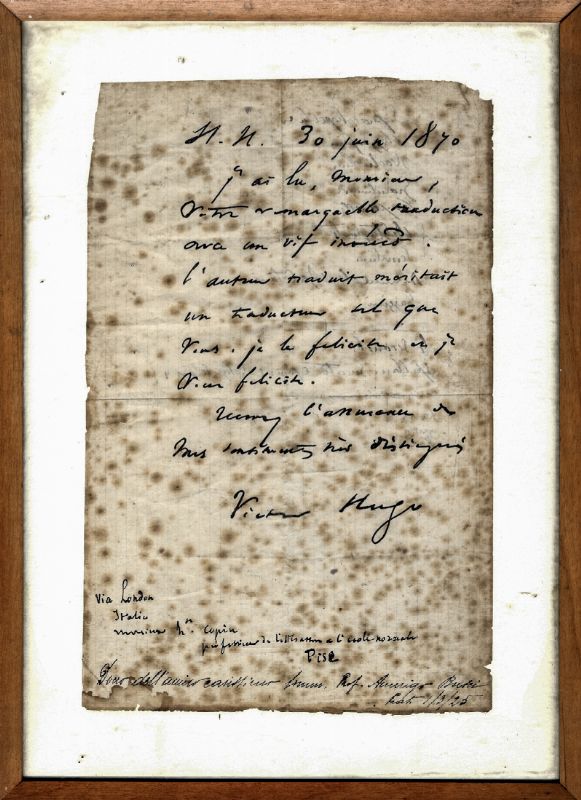 H. H. 30 juin 1870
j'ai lu, Monsieur,
votre remarquable traduction
avec un vif intérêt.
l'auteur traduit méritait
un traducteur tel que
vous. je le félicite et je
vous félicite.
recevez l'assurance de
mes sentiments très distingués
Victor Hugo
Via London
Italie
monsieur
professeur de littérature a l'école normale
Pise
Dono dell'amico carissimo Comm. Prof. Amerigo
1/3/25